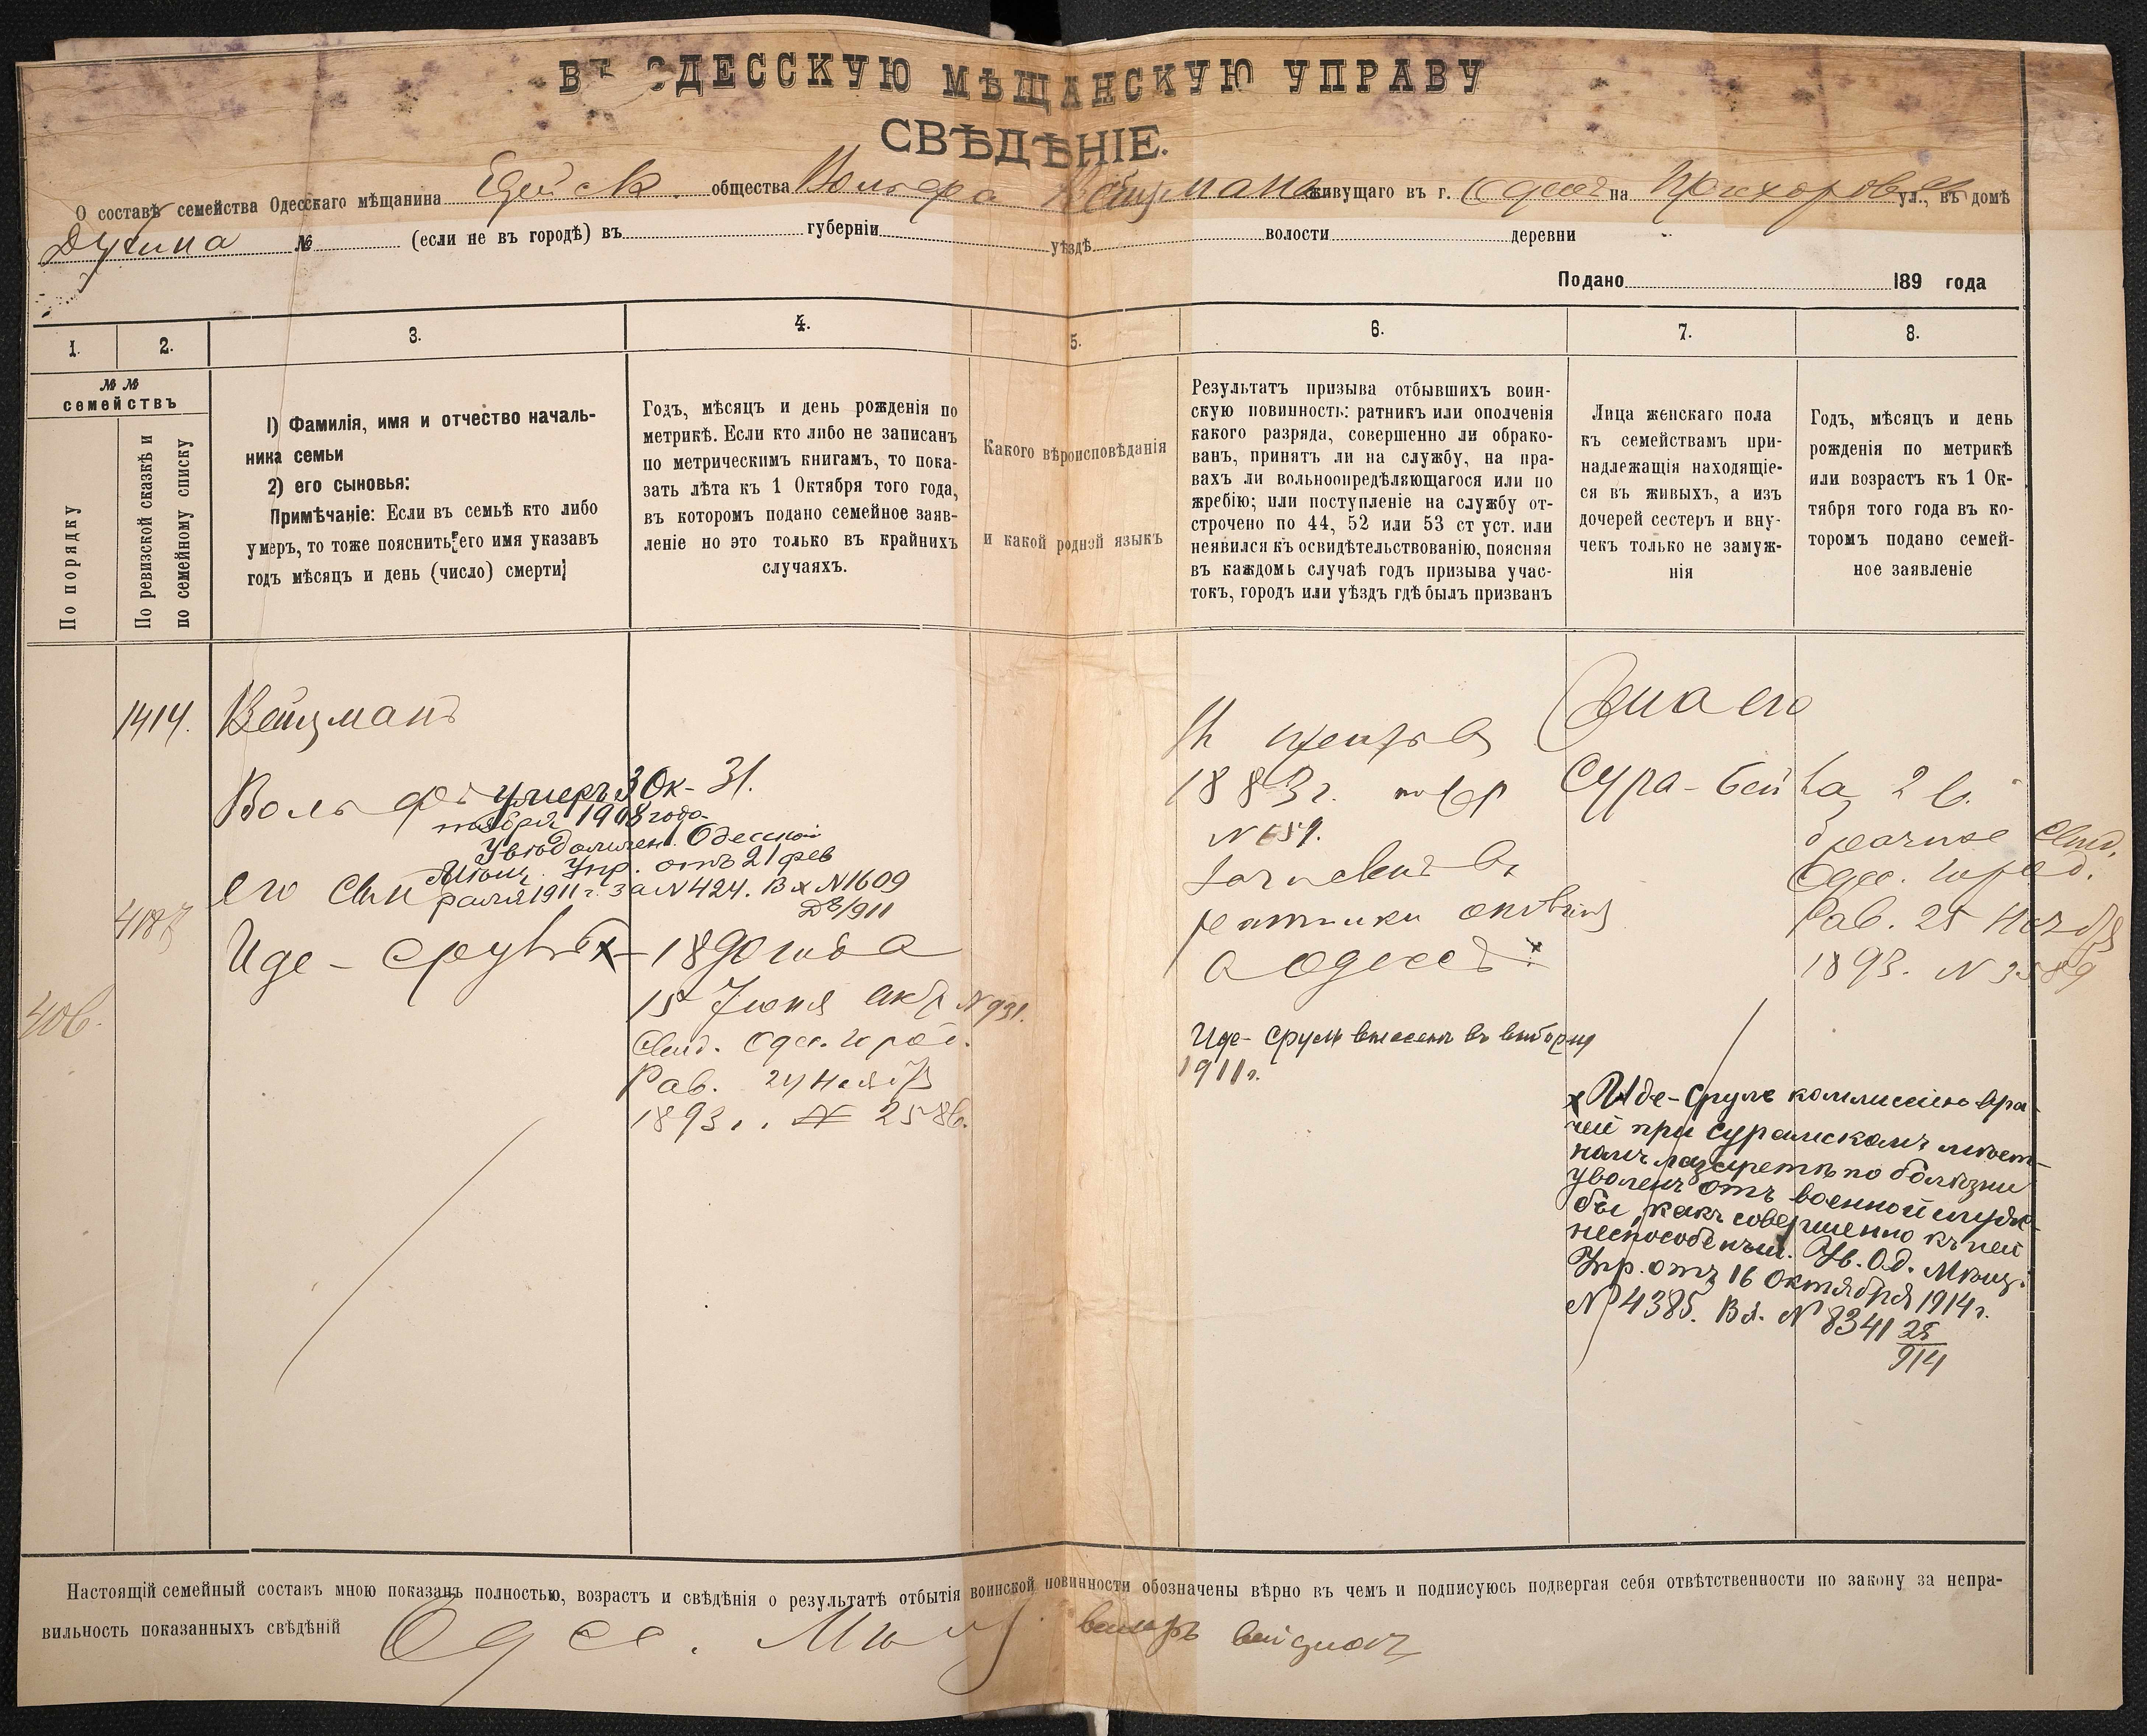 ВЪ ОДЕССКУЮ МѢЩАНСКУЮ УПРАВУ
СВѢДѢНІЕ.
О составѣ семейства Одесскаго мѣщанина общества Вольфа Вейцмана живущаго въ г. Одессѣ на Прохоровск ул., въ домѣ
№ (если не въ городѣ) въ губерніи уѣздѣ волости деревни
Подано 189 года
1. 2. 3. 4. 5. 6. 7. 8.
№ №
семействъ
По порядку
По ревизской сказкѣ и
по семейному списку
1) Фамилія, имя и отчество началь-
ника семьи
2) его сыновья:
Примѣчаніе: Если въ семьѣ кто либо
умеръ, то тоже пояснить его имя указавъ
годъ мѣсяцъ и день (число) смерти
Годъ, мѣсяцъ и день рожденія по
метрикѣ. Если кто либо не записанъ
по метрическимъ книгамъ, то пока-
зать лѣта къ 1 Октября того года,
въ которомъ подано семейное заяв-
леніе но это только въ крайнихъ
случаяхъ.
Какого вѣроисповѣданія
и какой родной языкъ
Результатъ призыва отбывшихъ воин-
скую повинность: ратникъ или ополченія
какого разряда, совершенно ли обрако-
ванъ, принятъ ли на службу, на пра-
вахъ ли вольноопредѣляющагося или по
жребію; или поступленіе на службу от-
строчено по 44, 52 или 53 ст уст. или
неявился къ освидѣтельствованію, поясняя
въ каждомъ случаѣ годъ призыва учас-
токъ, городъ или уѣздъ гдѣ былъ призванъ
Лица женскаго пола
къ семействамъ при-
надлежащія находящіе-
ся въ живыхъ, а изъ
дочерей сестеръ и вну-
чекъ только не замуж-
нія
Годъ, мѣсяцъ и день
рожденія по метрикѣ
или возрастъ къ 1 Ок-
тября того года въ ко-
торомъ подано семей-
ное заявленіе
1414. Вейцманъ
Вольфъ умеръ 3 Ок- 31.
тября 1908 года
Увѣдомленіе Одесской
Мѣщ. Упр. отъ 21 фев
раля 1911 г. за № 424. Вх № 1609
его сын
4187
Иде - Сруль x - 1890 года
15 Іюня акт № 931.
Свид. Одес. город.
Рав. 24 Ноября
1893 г. № 2586.
406.
призыв
1883 г.
ратники ополчен
в Одессѣ x
Иде- Сруль внесенъ въ выборку
1911 г.
Жена его
Сура - Бейла 2 
Свид.
Одес. город.
Рав. 25 Ноября
1893. №
x Иде-Сруль коммиссіею вра-
чей при Сурамскомъ мѣст-
номъ лазаретѣ по болѣзни
уволенъ отъ военной служ-
бы, какъ совершенно къ ней
неспособный. Ув. Од. Мѣщ.
Упр. отъ 16 Октября 1914 г.
№ 4385. Вх. № 8341 25/914
Настоящій семейный составъ мною показанъ полностью, возрастъ и свѣдѣнія о результатѣ отбытія воинской повинности обозначены вѣрно въ чемъ и подписуюсь подвергая себя отвѣтственности по закону за непра-
вильность показанныхъ свѣдѣній Одес. Мѣщ.